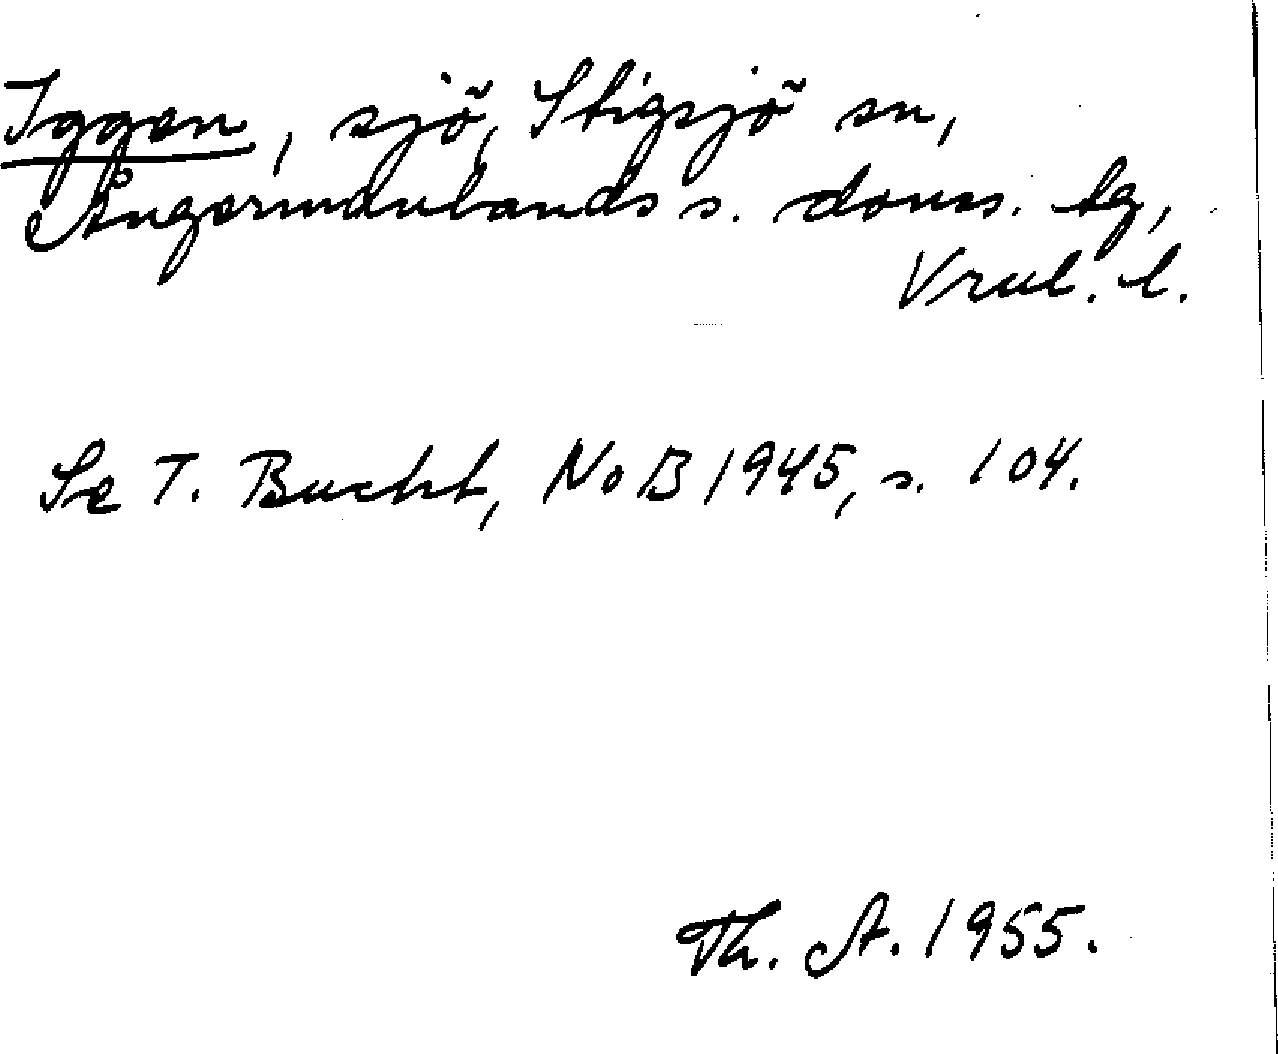 Iggen, sjö, Stigsjö sn,
Ångermanlands s. doms. tg,
Vrnl. l.
Se T. Bucht, NoB 1945, s. 104.
Th. A. 1955.